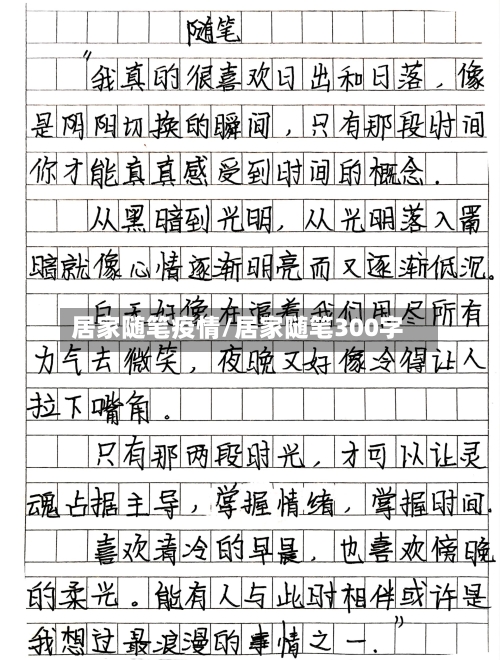 随笔
“我真的很喜欢日出和日落，像
是阴阳切换的瞬间，只有那段时间
你才能真真感受到时间的概念．
从黑暗到光明，从光明落入黑
暗就像心情逐渐明亮而又逐渐低沉。
白天好像在逼着我们用尽所有
居家随笔疫情/居家随笔300字
力气去微笑，夜晚又好像冷得让人
拉下嘴角。
只有那两段时光，才可以让灵
魂占据主导，掌握情绪，掌握时间．
喜欢清冷的早晨，也喜欢傍晚
的柔光。能有人与此时相伴或许是
我想过最浪漫的事情之一．”